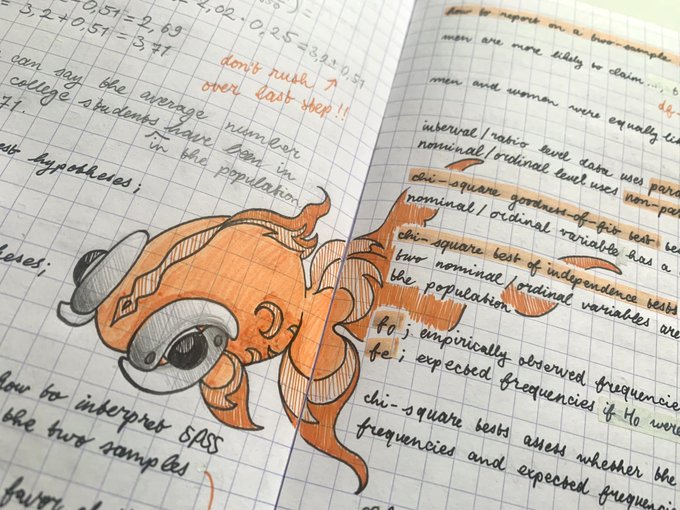 + 0,51 = 2,69
= 3,2 + 0,51 = 3,71
4,02 · 0,25 = 3,2 ± 0,51
don't rush ↗
over last step !!
can say the average number
college students have been in
in the population
71.
est hypotheses;
heses;
how to interpret SPSS
the two samples
favor
how to report on a two-sample
men are more likely to claim...,
df-
men and women were equally lik
interval/ratio level data uses para
nominal/ordinal level uses non-pa
chi-square goodness-of-fit test
nominal/ordinal variable has a
chi-square test of independence tests
two nominal/ordinal variables are
the population
fo; empirically observed frequencie
fe; expected frequencies if H0 were
chi-square tests assess whether the
frequencies and expected frequencie